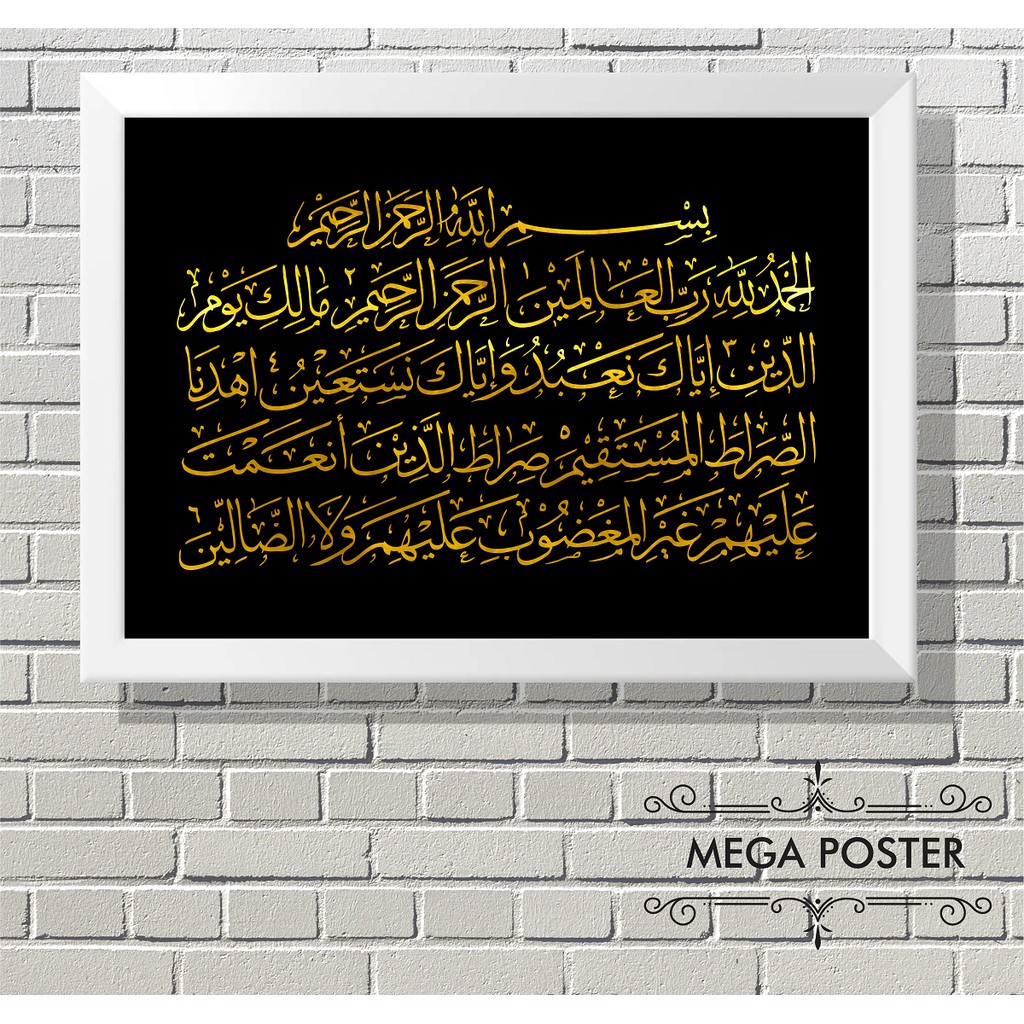 بِسْمِ اللهِ الرَّحْمَنِ الرَّحِيْمِ
الْحَمْدُ لِلَّهِ رَبِّ الْعَالَمِيْنَ ١ الرَّحْمَنِ الرَّحِيْمِ ٢ مَالِكِ يَوْمِ
الدِّيْنِ ٣ إِيَّاكَ نَعْبُدُ وَإِيَّاكَ نَسْتَعِيْنُ ٤ اهْدِنَا
الصِّرَاطَ الْمُسْتَقِيْمَ صِرَاطَ الَّذِيْنَ أَنْعَمْتَ
عَلَيْهِمْ غَيْرِ الْمَغْضُوْبِ عَلَيْهِمْ وَلَا الضَّالِّيْنَ ٦
MEGA POSTER